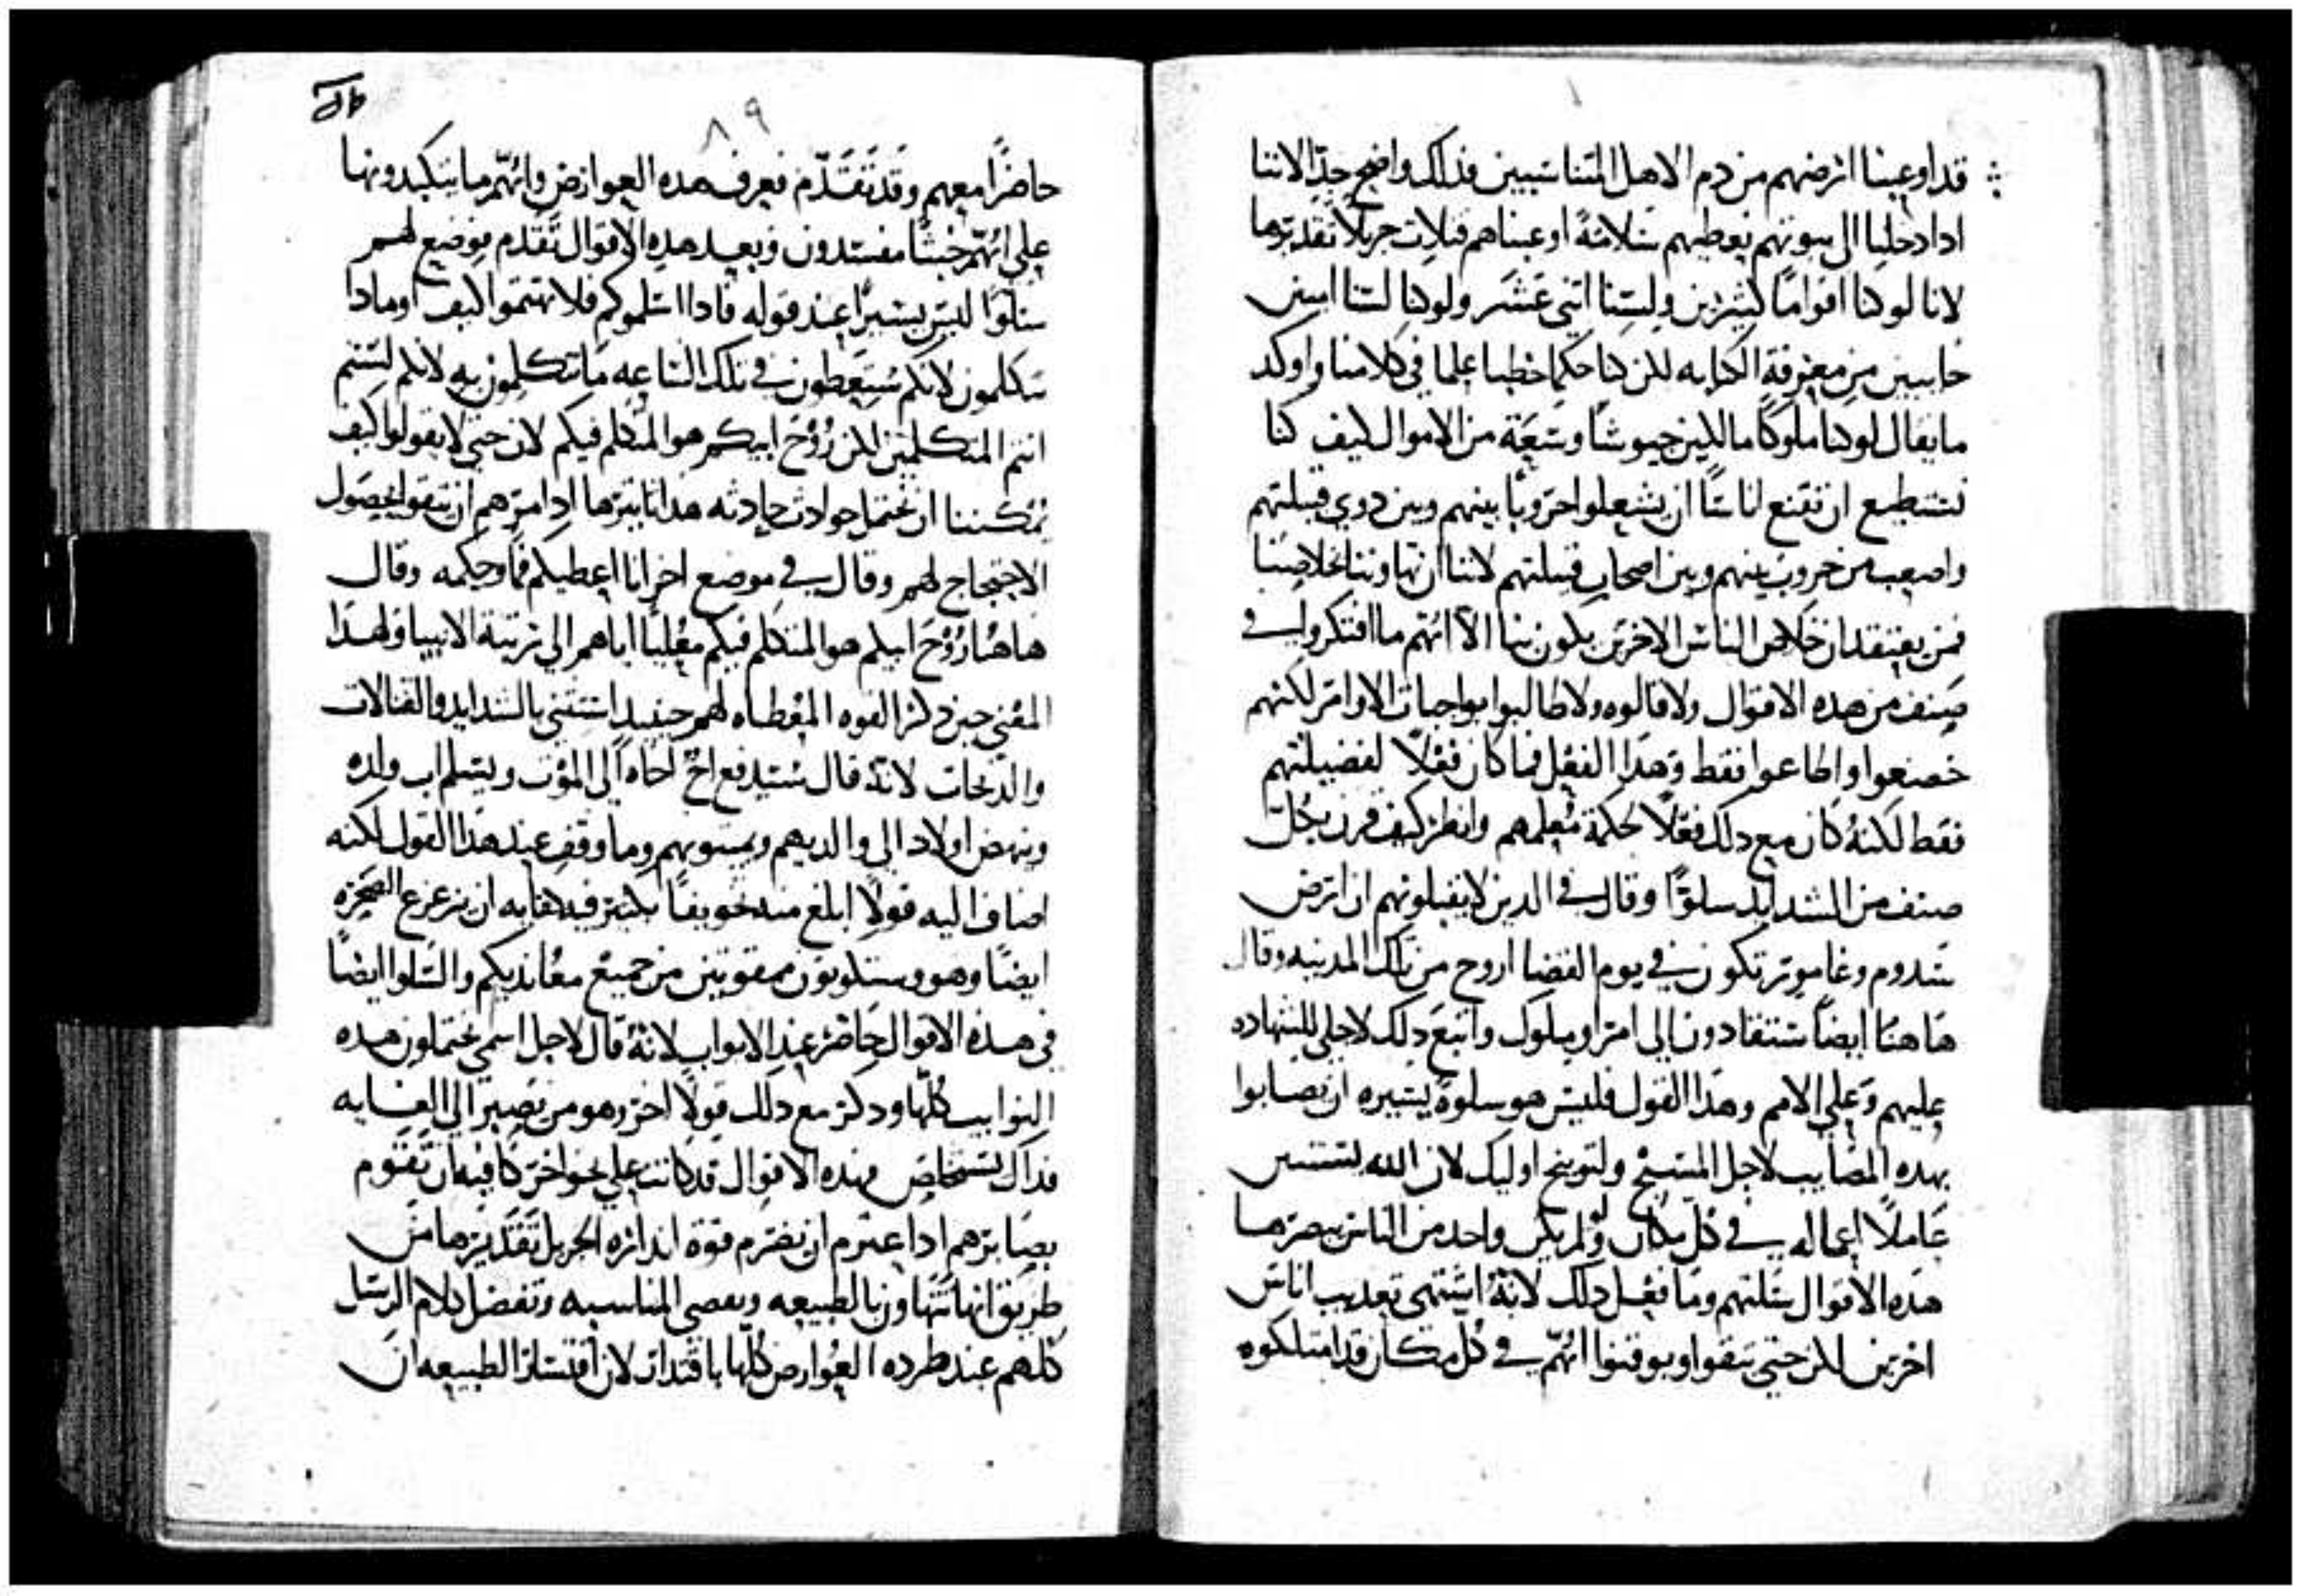 قد اوعبنا ارضهم من دم الاهل المتناسبين فذلك واضح جدًا لاننا
ادا دخلنا الى بيوتهم نعطيهم سلامةً اوعبناهم قتلات جزيلًا تقديرها
لانا لو كنا اقوامًا كثيرين ولسنا اتني عشر ولو كنا لسنا اميين
خايبين من معرفة الكتابه لكن كنا حكما خطبا علما في كلامنا واوكد
ما يقال لو كنا ملوكًا مالكين جيوشًا وسعة من الاموال كيف كنا
نستطيع ان نقنع اناسًا ان يشعلوا حروبًا بينهم وبين دوي قبيلتهم
واصعب من حروب بينهم وبين اصحاب قبيلتهم لاننا ان تهاوننا بخلاصنا
فمن يعتقد ان خلاص الناس الاخرين يكون بنا الا انهم ما افتكروا في
صنف من هده الاقوال ولا قالوه ولا طالبوا بواجبات الاوامر لكنهم
خضعوا واطاعوا فقط وهدا الفعل فما كان فعلًا لفضيلتهم
فقط لكنهُ كان مع دلك فعلًا لحكمة معلمهم وانظر كيف قرن بكل
صنف من الشدايد سلوةً وقال في الدين لا يقبلونهم ان ارض
سدوم وغامور تكون في يوم القضا اروح من تلك المدينه وقال
هاهنا ايضًا ستقادون الى امرا وملوك واتبع دلك لاجلي للشهاده
عليهم وعلى الامم وهدا القول فليس هو سلوةً يسيره ان يصابوا
بهده المصايب لاجل المسيح ولتوبيخ اوليك لان الله
عاملًا اعماله في كل مكان ولو لم يكن واحد من الناس يبصرها
هده الاقوال سلتهم وما فعل دلك لانهُ اشتهى تعديب اناس
اخرين لكن حتى يتقوا ويوقنوا انهم في كل مكان قد امتلكوه
٨٩
حاضرًا معهم وقد تقدّم فعرف هده العوارض وانهم ما يتكبدونها
على انهم خبثًا مفسدون وبعد هده الاقوال تقدم فوضع لهم
سلوًا ليس يسيرًا عند قوله فادا اسلموكم فلا تهتموا كيف او مادا
تتكلمون لانكم ستعطون في تلك الساعه ما تتكلمون به لانكم لستم
انتم المتكلمين لكن رُوْح ابيكم هو المتكلم فيكم لان حتى لا يقولوا كيف
يمكننا ان نحتمل حوادث حادثه هدا تاتيرها اد امرهم ان يتقوا بحصول
الاحتجاج لهم وقال في موضع اخر انا اعطيكم فمًا وحكمه وقال
هاهنا رُوْح ابيكم هو المتكلم فيكم معليًا اياهم الى رتبة الانبيا ولهدا
المعنى حين دكر القوه المعطاه لهم حينيد استتنى بالشدايد والقتالات
والدبحات لانهُ قال سيدفع اخٌ اخاه الى الموت ويسلم اب ولده
وينهض اولاد الى والديهم ويميتوهم وما وقف عند هدا القول لكنه
اضاف اليه قولًا ابلغ منه تخويفًا يكثر فيه كفايه ان يزعزع الصخره
ايضًا وهو وستكونون ممقوتين من جميع معانديكم والسلوا ايضًا
في هده الاقوال حاضر عند الابواب لانهُ قال لاجل اسمي تحتملون هده
النوايب كلها ودكر مع دلك قولًا اخر وهو من يصبر الى الغايه
فداك يتخلص وهده الاقوال قد كانت على نحو اخر كافيه ان تقوم
بصايرهم ادا اعتزم ان تضرم قوة انداره الجزيل تقديرها من
طريق انها تتهاون بالطبيعه وتعصي المناسبه وتفضل كلام الرسل
كلهم عند طرده العوارض كلها باقتدار لان اقتسار الطبيعه ان